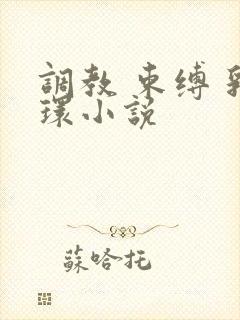 調教 束縛 乳
環小說
蘇哈托